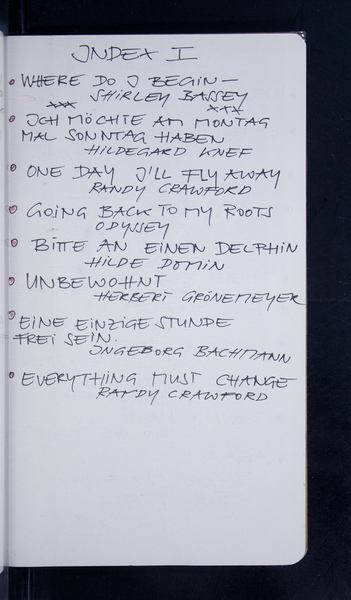 INDEX I
• WHERE DO I BEGIN —
SHIRLEY BASSEY
xxx xxx
• ICH MÖCHTE AM MONTAG
MAL SONNTAG HABEN
HILDEGARD KNEF
• ONE DAY I'LL FLY AWAY
RANDY CRAWFORD
• GOING BACK TO MY ROOTS
ODYSSEY
• BITTE AN EINEN DELPHIN
HILDE DOMIN
• UNBEWOHNT
HERBERT GRÖNEMEYER
• EINE EINZIGE STUNDE
FREI SEIN.
INGEBORG BACHMANN
• EVERYTHING MUST CHANGE
RANDY CRAWFORD